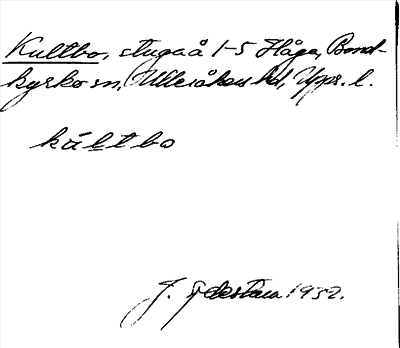 Kultbo, stuga å 1-5 Håga, Bond-
kyrko sn, Ulleråkers hd, Upps. l.
kultbo
J. 1932.